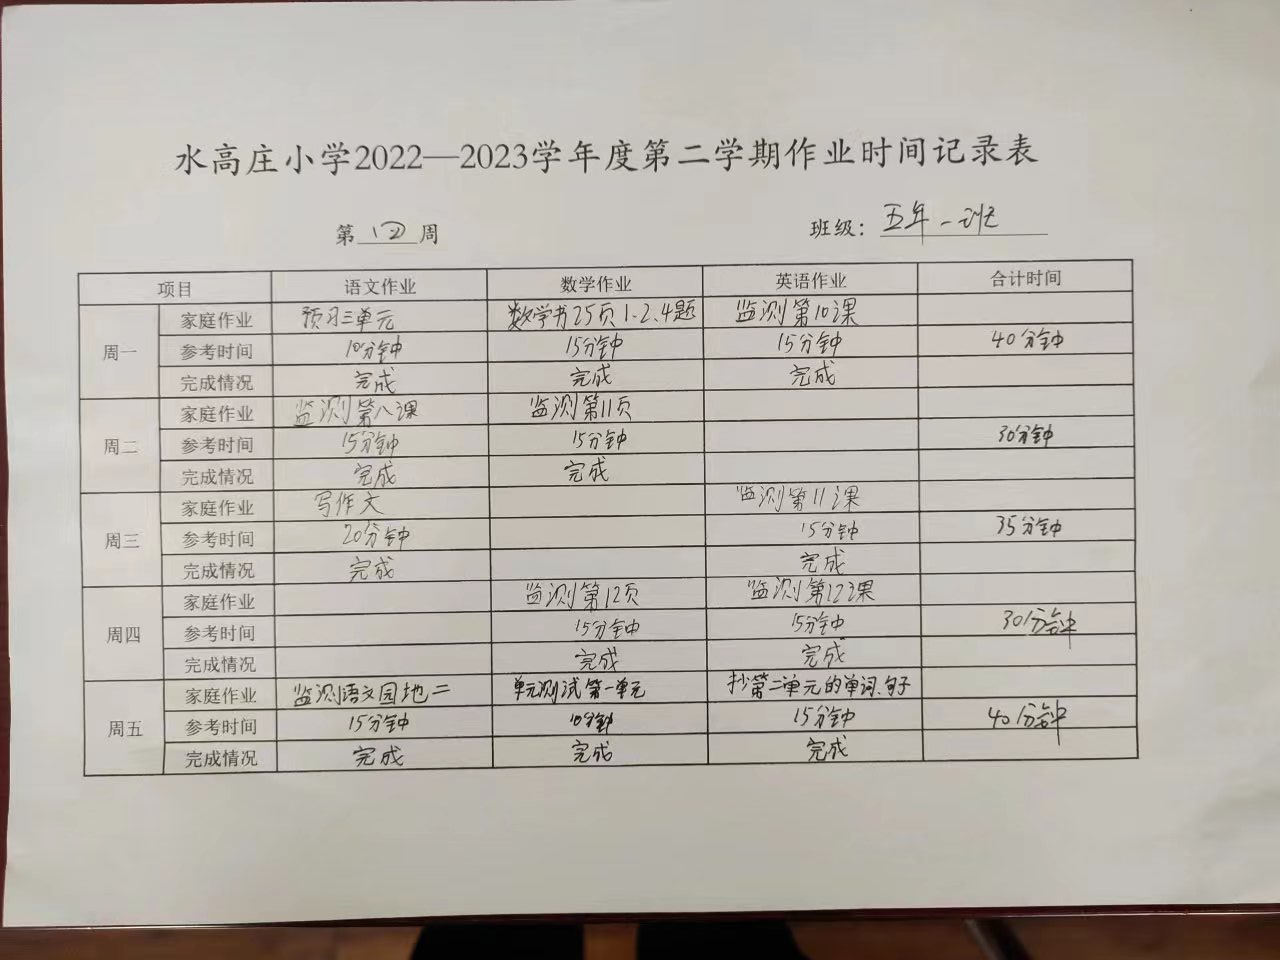 水高庄小学2022—2023学年度第二学期作业时间记录表
第 四 周 班级：五年一班
项目 语文作业 数学作业 英语作业 合计时间
周一 家庭作业 预习三单元 数学书25页1、2、4题 监测第10课
参考时间 10分钟 15分钟 15分钟 40分钟
完成情况 完成 完成 完成
周二 家庭作业 监测第八课 监测第11页
参考时间 15分钟 15分钟 30分钟
完成情况 完成 完成
周三 家庭作业 写作文 监测第11课
参考时间 20分钟 15分钟 35分钟
完成情况 完成 完成
周四 家庭作业 监测第12页 监测第12课
参考时间 15分钟 15分钟 30分钟
完成情况 完成 完成
周五 家庭作业 监测语文园地二 单元测试第一单元 抄第二单元的单词、句子
参考时间 15分钟 10分钟 15分钟 40分钟
完成情况 完成 完成 完成